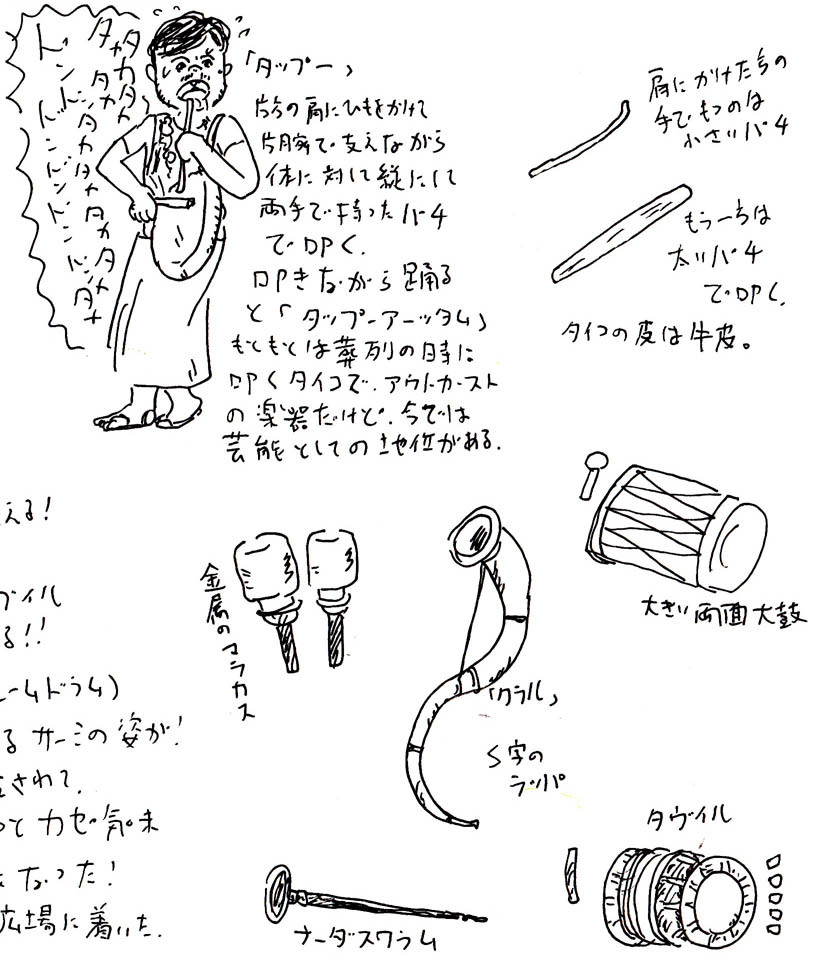 「タップー」
片方の肩にひもをかけて
片腕で支えながら
体に対して縦にして
両手で持ったバチ
で叩く.
叩きながら踊る
と「タップーアーッタム」
もともとは葬列の時に
叩くタイコで、アウトカースト
の楽器だけど、今では
芸能としての地位がある.
肩にかけた方の
手でもつのは
小さいバチ
もう一ちは
太いバチ
で叩く.
タイコの皮は牛皮。
大きい両面太鼓
金属のマラカス
「クラル」
S字の
ラッパ
タヴィル
ナーダスワラム
える!
ヴイル
る!!
ームドラム)
るサーミの姿が!
されて.
っとカゼ気味
なった!
広場に着いた.